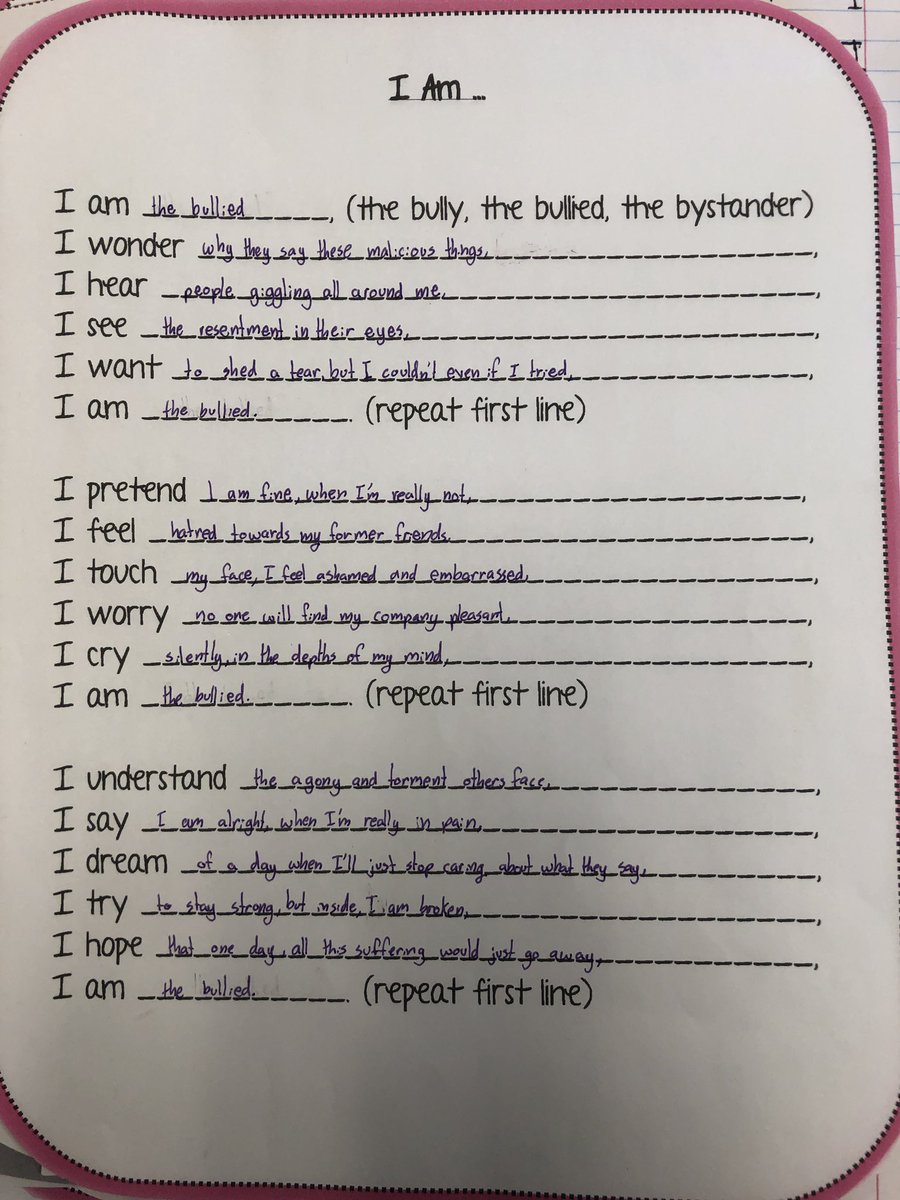 I Am ...
I am the bullied, (the bully, the bullied, the bystander)
I wonder why they say these malicious things,
I hear people giggling all around me,
I see the resentment in their eyes,
I want to shed a tear, but I couldn't even if I tried,
I am the bullied. (repeat first line)
I pretend I am fine, when I'm really not,
I feel hatred towards my former friends,
I touch my face, I feel ashamed and embarrassed,
I worry no one will find my company pleasant,
I cry silently, in the depths of my mind,
I am the bullied. (repeat first line)
I understand the agony and torment others face,
I say I am alright, when I'm really in pain,
I dream of a day when I'll just stop caring about what they say,
I try to stay strong, but inside, I am broken,
I hope that one day, all this suffering would just go away,
I am the bullied. (repeat first line)